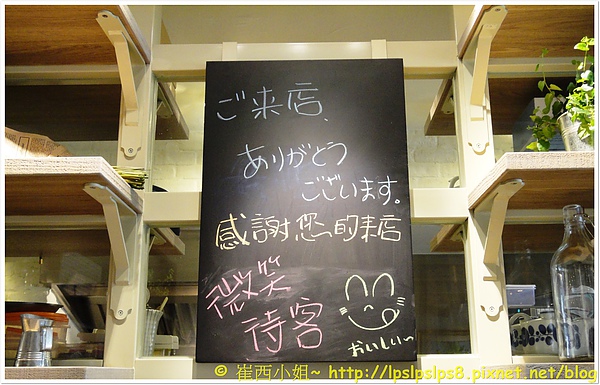 ご来店、
ありがとう
ございます。
感謝您的來店
微笑
待客
おいしい〜
© 崔西小姐~ http://lpslpslps8.pixnet.net/blog